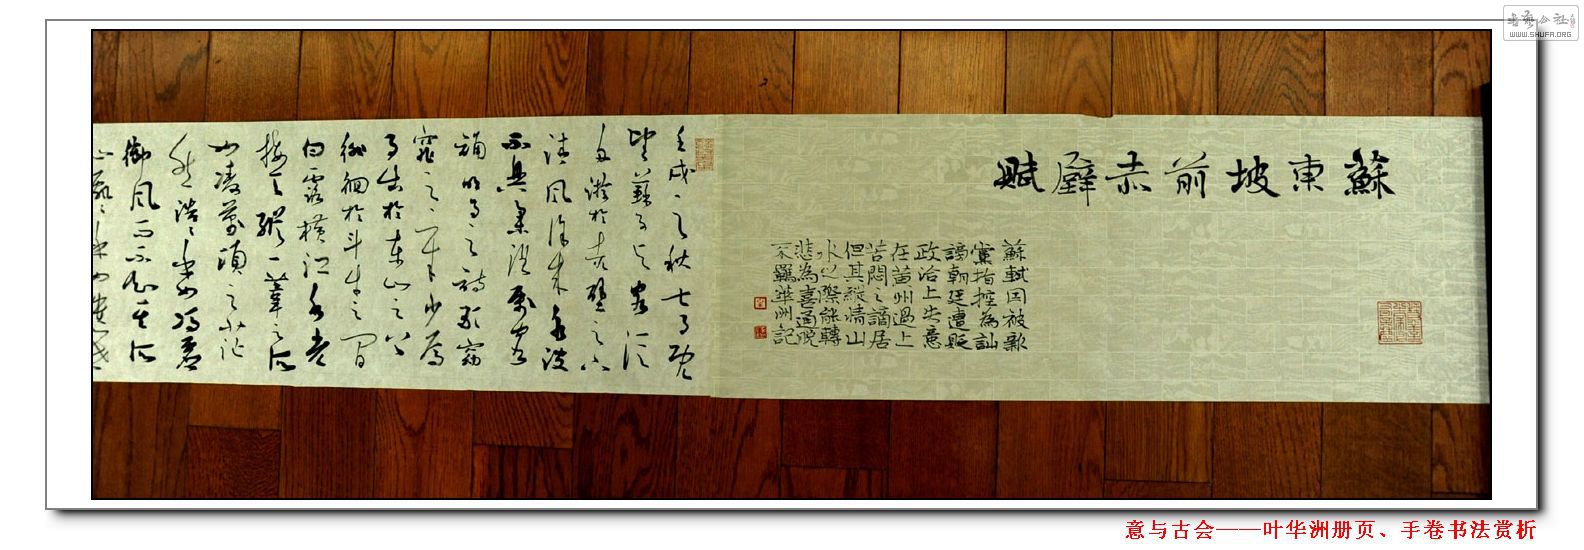 書藝公社
WWW.SHUFA.ORG
蘇東坡前赤壁賦
蘇軾因被新
黨指控為訕
謗朝廷遭貶
政治上失意
在黄州過上
苦悶之謫居
但其縱情山
水之際能轉
悲為喜通脱
不羈華洲記
壬戌之秋七月既
望蘇子與客泛
舟遊於赤壁之下
清風徐来水波
不興舉酒屬客
誦明月之詩歌窈
窕之章少焉
月出於東山之上
徘徊於斗牛之間
白露横江水光
接天縱一葦之所
如凌萬頃之茫
然浩浩乎如馮虚
御風而不知其所
止飄飄乎如遺世
意与古会——叶华洲册页、手卷书法赏析